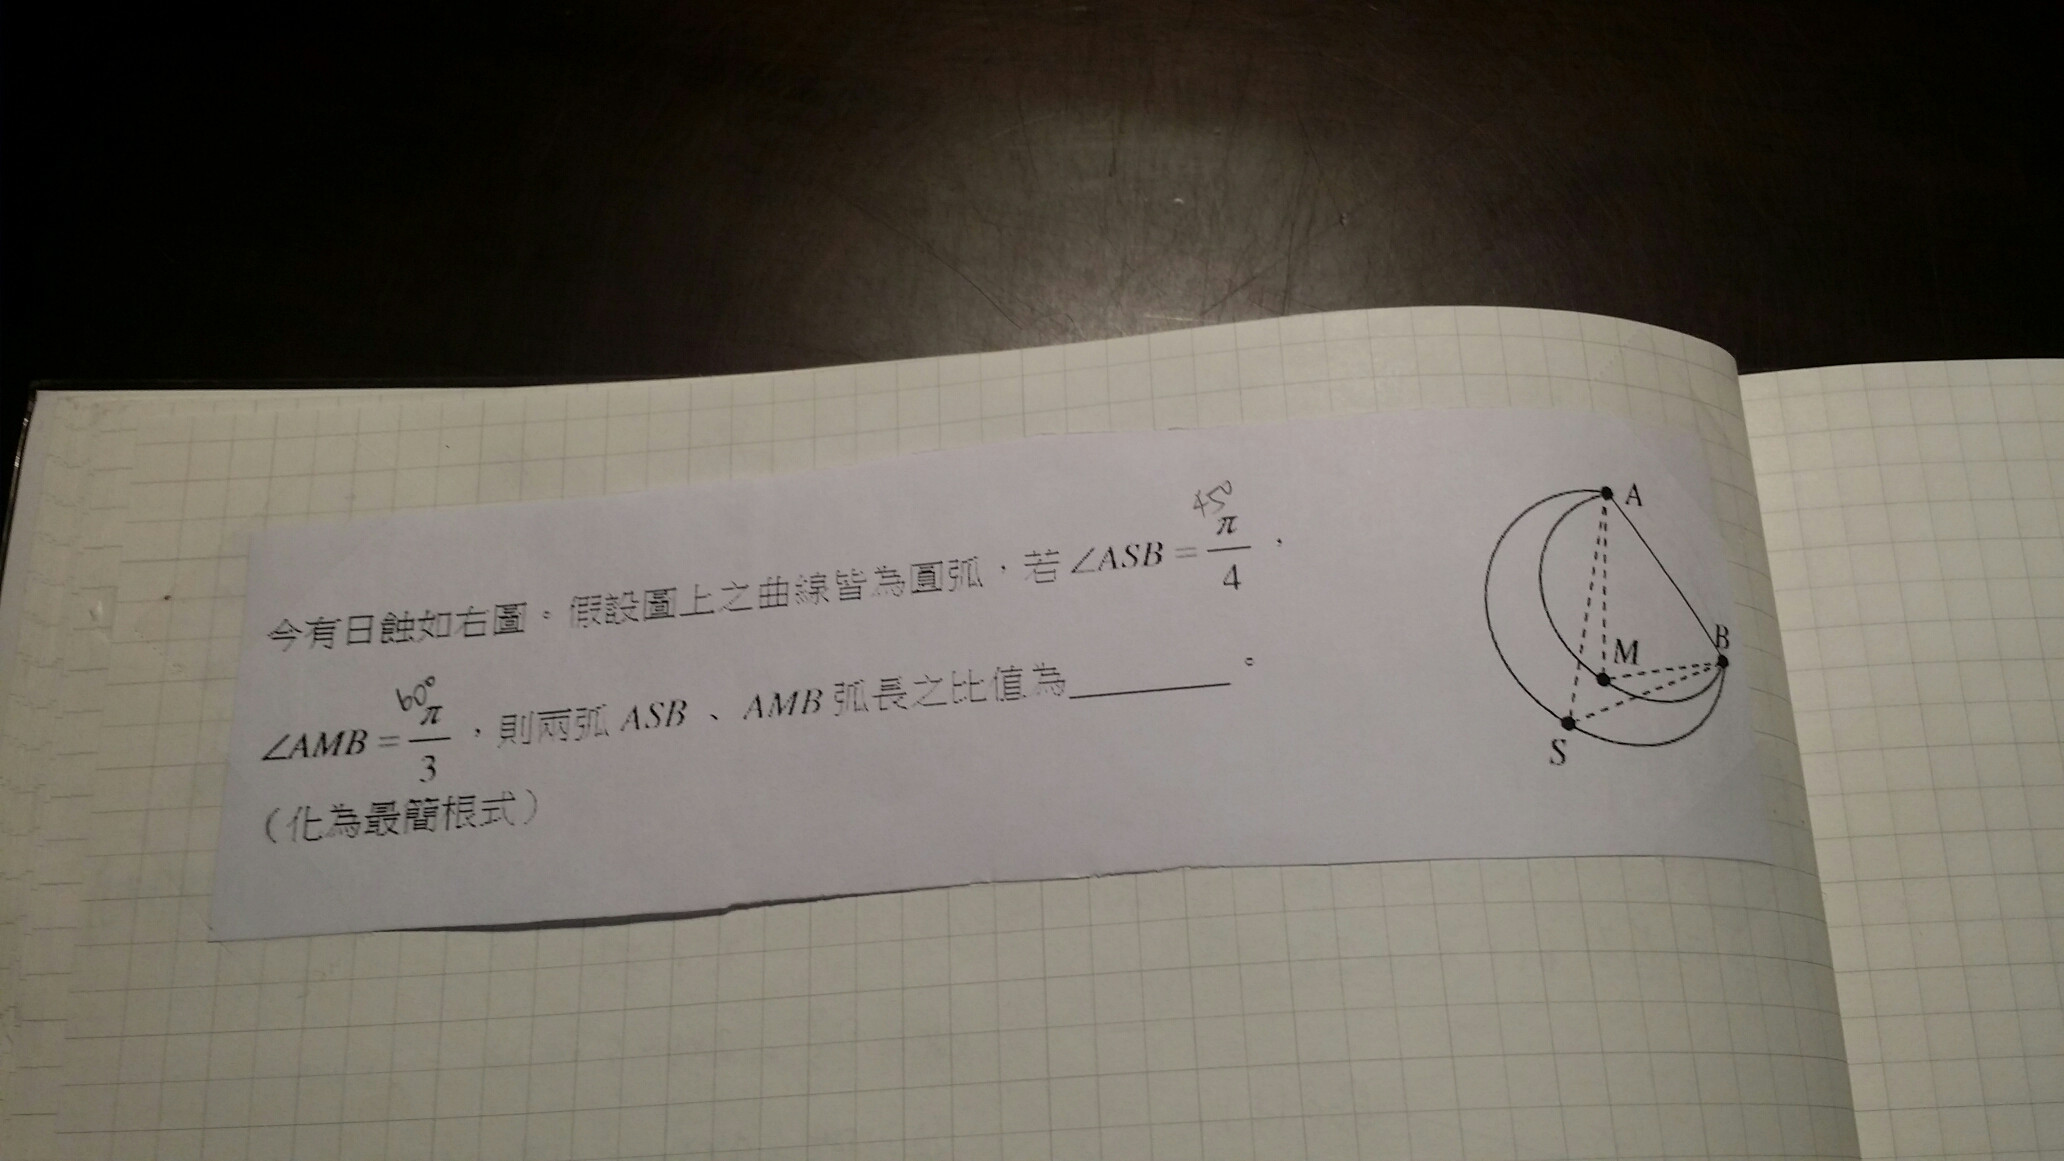 今有日蝕如右圖。假設圖上之曲線皆為圓弧，若∠ASB = π/4，
45°
∠AMB = π/3，則兩弧 ASB、AMB 弧長之比值為________。
60°
（化為最簡根式）
A
B
M
S